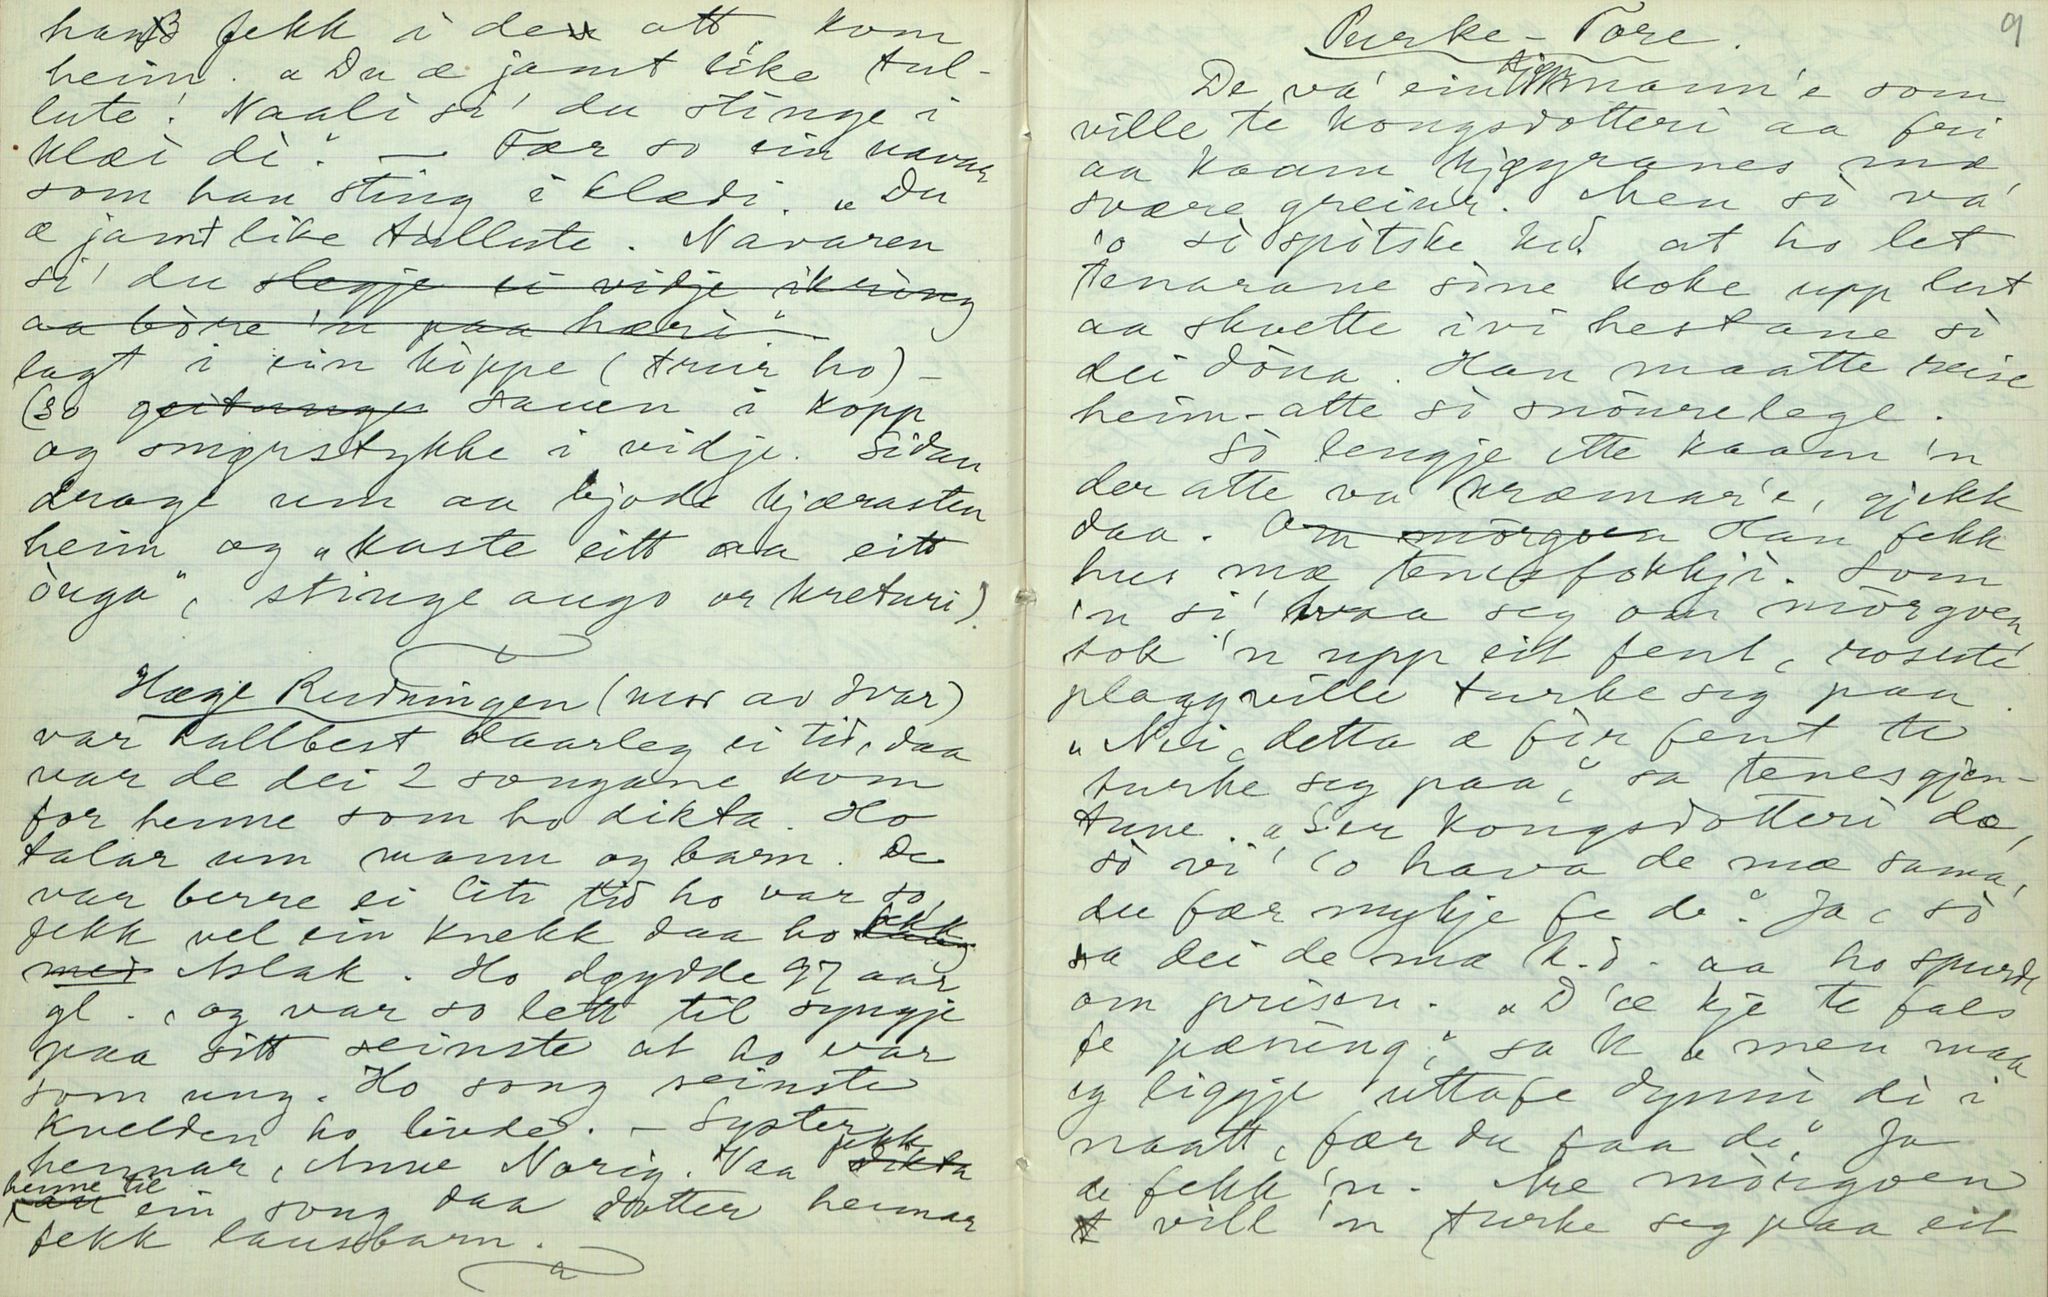 hans fekk i den att, kom
heim. "Du æ jamt like tul-
lute! Naali si' du stinge i
klæi di". — Fær so ein navar
som han sting i klædi. "Du
æ jamt like tullute. Navaren
si' du slegje ei vidje ikring
aa böre 'n paa hæri"
lagt i ein kippe (trur ho) –
(so geitunge sauen i kopp
og smørstykke i vidje. Sidan
drage um aa bjode kjærasten
heim og "kaste eitt aa eitt
òuga", stinge augo or kreturi).
Hæge Rudningen (mor av Ivar)
var tullbest daarleg ei tid, daa
var de dei 2 songane kom
for henne som ho dikta. Ho
talar um mann og barn. De
var berre ei liti tid ho var so,
fekk vel ein knekk daa ho fekk
med Aslak. Ho døydde 97 aar
gl., og var so lett til syngje
paa sitt seinste at ho var
som ung. Ho song seinste
kvelden ho livde. – Syster
hennar, Anne Norig. Vaa fekk dikta
henne til
ein song daa dotter hennar
fekk lausbarn.
9
Purke-Tore.
De va' ein rikmann'e som
ville te kongsdotteri aa fri
aa kaam kjøyranes mæ
svære greiur. Men si va'
'o si spitske kd. at ho let
tenarane sine koke upp lut
aa skvette ivi hestane si
dei döna. Han maatte reise
heim-atte si snöurelege.
Si lengje ette kaam 'n
der atte va kræmar'e, gjekk
daa. Om mörgoen Han fekk
hus mæ tenesfokkji. Som
'n si' tvaa seg om mörgoen
tok 'n upp eit fent, rosute
plagg ville turke seg paa.
"Nei, detta æ för fent te
turke seg paa", sa tenesgjen-
tune. "Ser kongsdotteri dæ,
sò vi' 'o hava de mæ sama,
du fær mykje fe de". Ja, sò
sa dei de mæ k.d. aa ho spurde
om prisen. "D'æ kje te fals
fe pæning", sa K "men maa
eg liggje uttafe dynni di i
naatt, fær du faa dæ". Ja
de fekk 'n. Are mörgoen
vill 'n turke seg paa eit